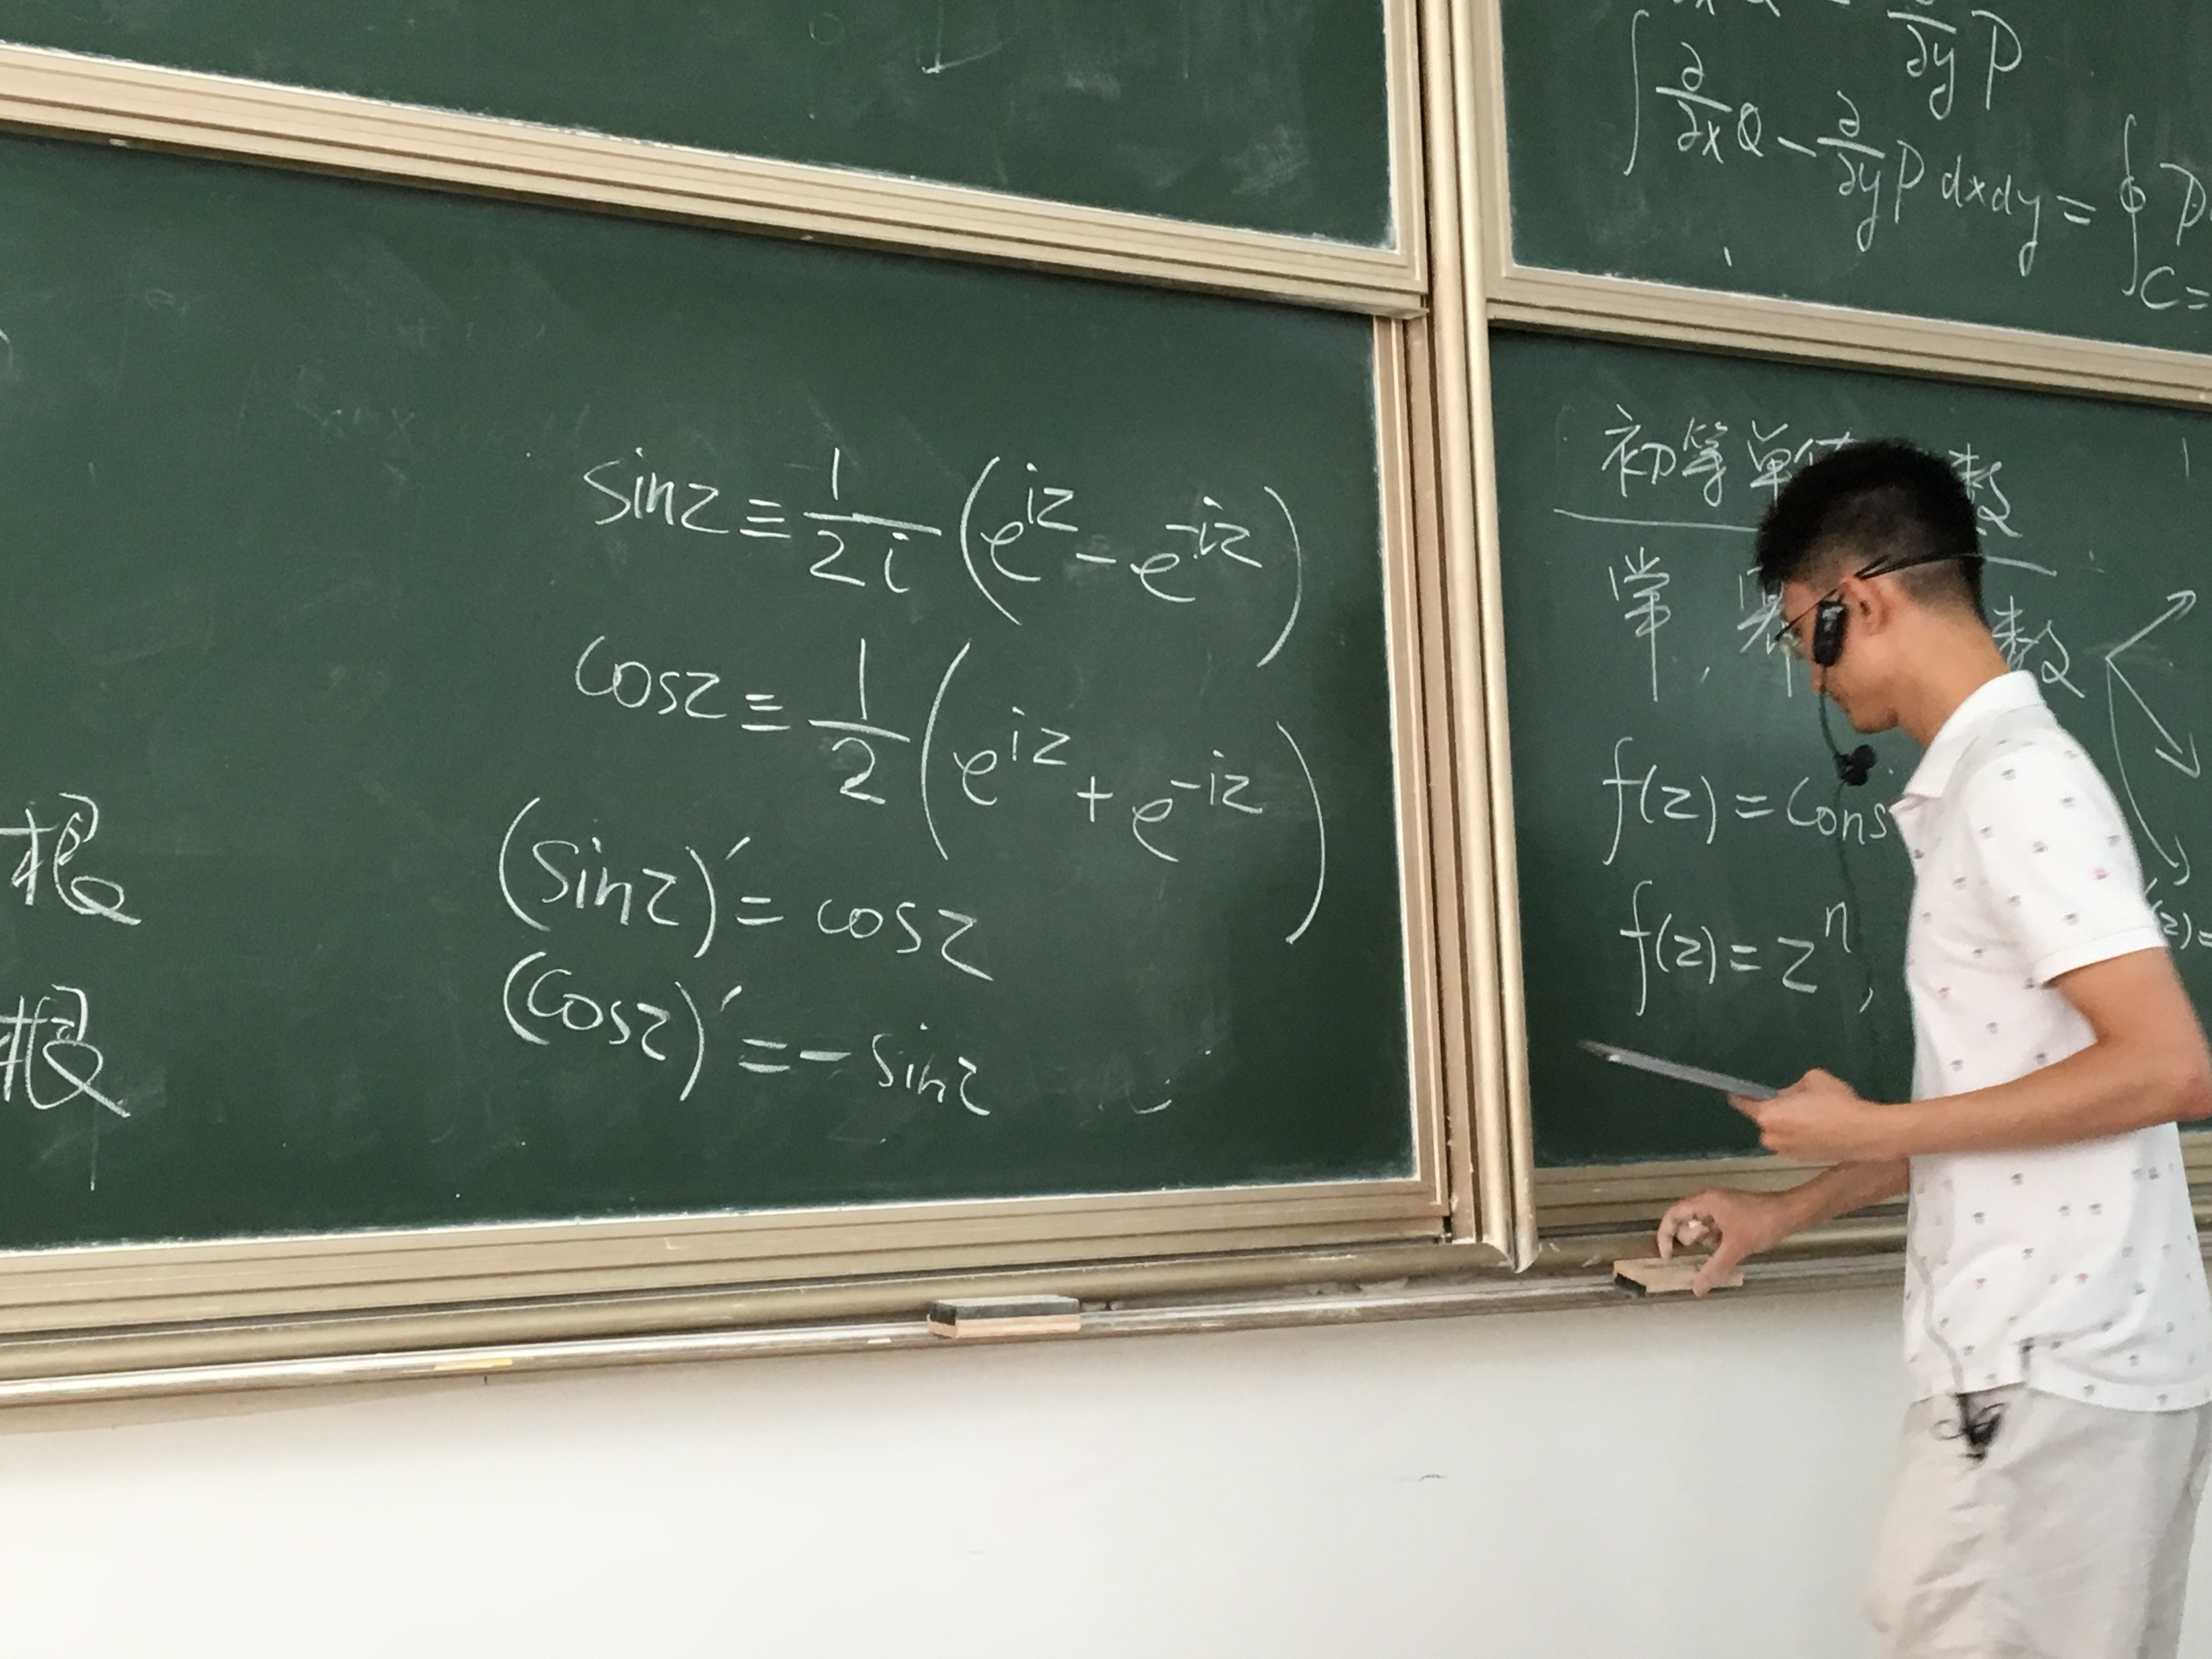 根
根
sinz ≡ 1/2i (e^{iz} - e^{-iz})
cosz ≡ 1/2 (e^{iz} + e^{-iz})
(sinz)′ = cosz
(cosz)′ = - sinz
∂/∂y P
∫ ∂/∂x Q - ∂/∂y P dxdy = ∮ P
C =
初等单 数
常, 数
f(z) = Cons
f(z) = z^n,